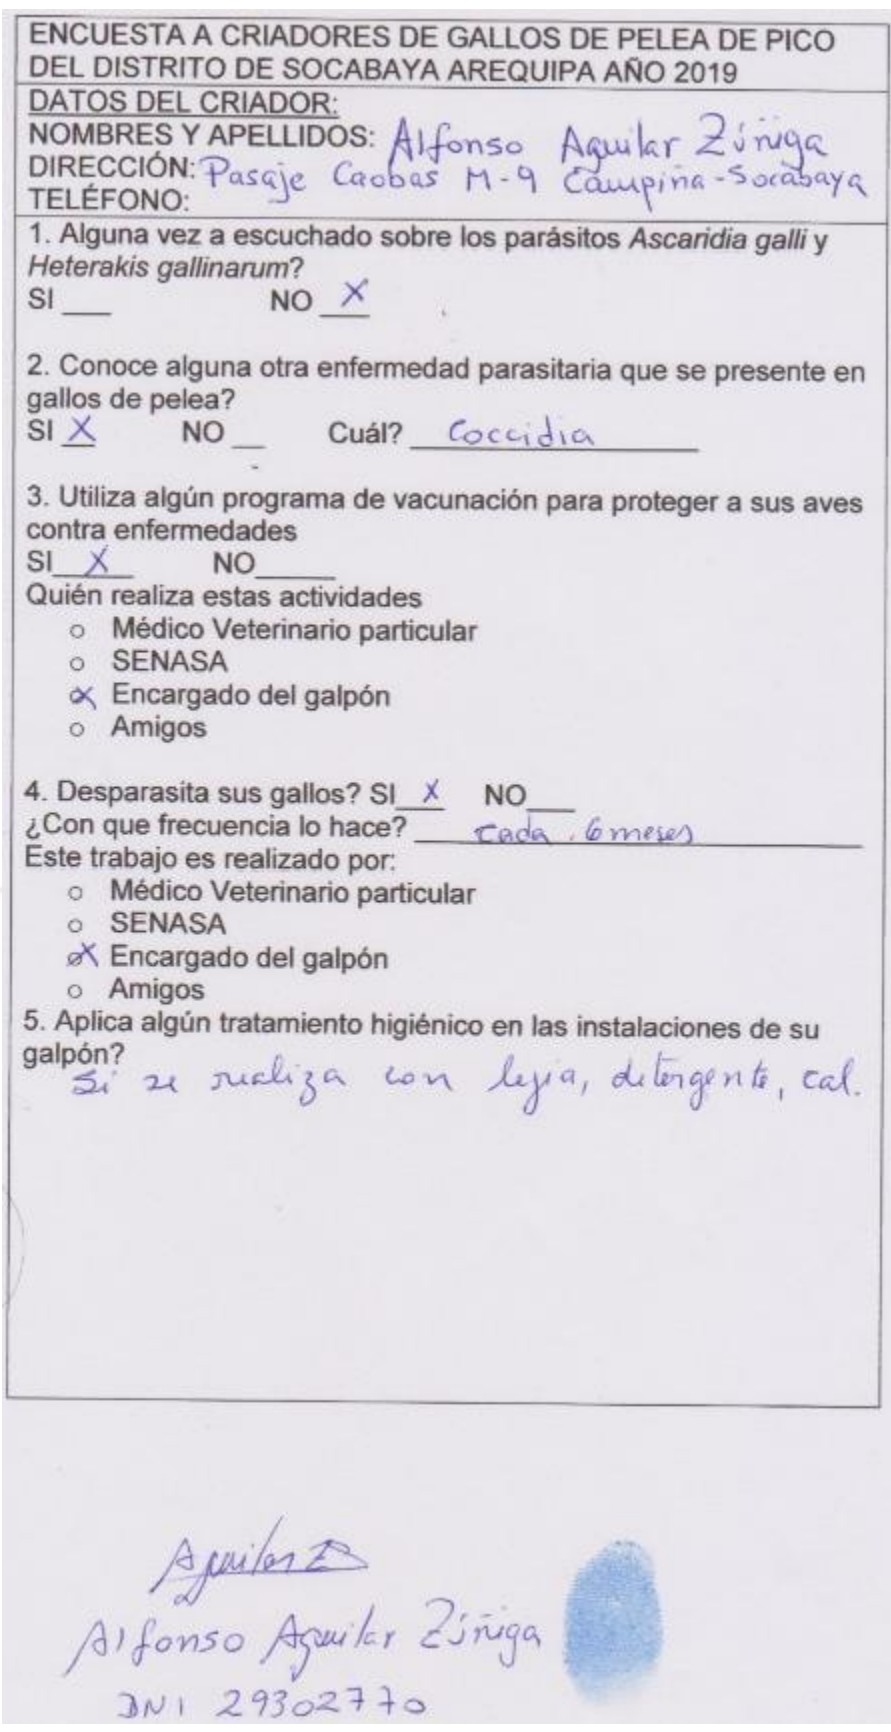 ENCUESTA A CRIADORES DE GALLOS DE PELEA DE PICO
DEL DISTRITO DE SOCABAYA AREQUIPA AÑO 2019
DATOS DEL CRIADOR:
NOMBRES Y APELLIDOS: Alfonso Aguilar Zúñiga
DIRECCIÓN: Pasaje Caobas M-9 Campiña-Socabaya
TELÉFONO:
1. Alguna vez a escuchado sobre los parásitos Ascaridia galli y
Heterakis gallinarum?
SI ___ NO _X_
2. Conoce alguna otra enfermedad parasitaria que se presente en
gallos de pelea?
SI X NO __ Cuál? Coccidia
3. Utiliza algún programa de vacunación para proteger a sus aves
contra enfermedades
SI__X__ NO_____
Quién realiza estas actividades
○ Médico Veterinario particular
○ SENASA
X Encargado del galpón
○ Amigos
4. Desparasita sus gallos? SI__X__ NO___
¿Con que frecuencia lo hace? cada 6 meses
Este trabajo es realizado por:
○ Médico Veterinario particular
○ SENASA
X Encargado del galpón
○ Amigos
5. Aplica algún tratamiento higiénico en las instalaciones de su
galpón?
Si se realiza con lejia, detergente, cal.
Aguilar Z
Alfonso Aguilar Zúñiga
DNI 29302770